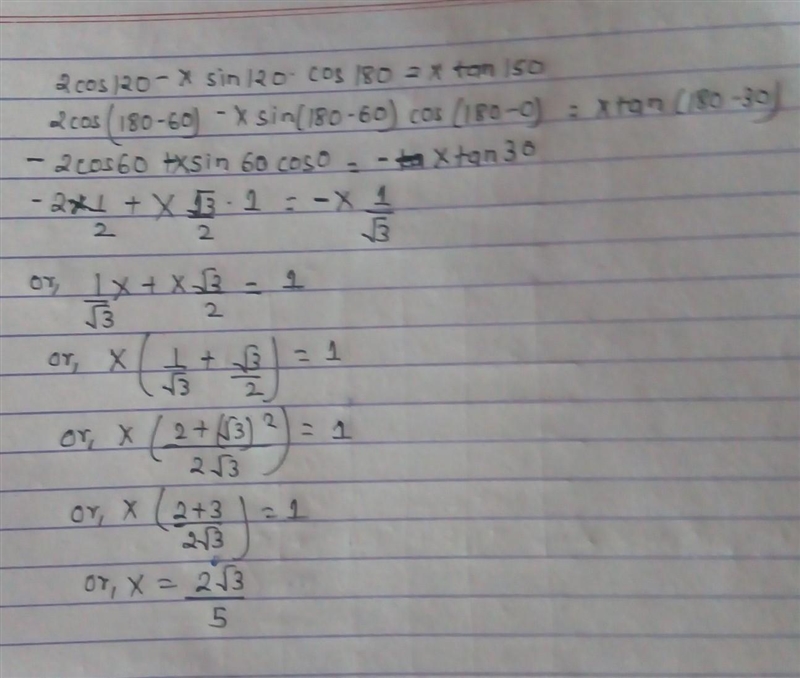 2cos120 - x sin120 · cos180 = x tan150
2cos(180-60) - x sin(180-60) cos(180-0) = x tan(180-30)
- 2cos60 + x sin60 cos0 = - x tan30
- 2×1/2 + x √3/2 · 1 = - x 1/√3
or, 1/√3 x + x √3/2 = 1
or, x (1/√3 + √3/2) = 1
or, x (2+(√3)²/2√3) = 1
or, x (2+3/2√3) = 1
or, x = 2√3/5